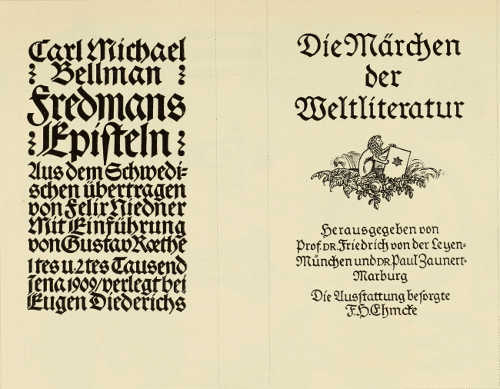 Carl Michael
Bellman
Fredmans
Episteln
Aus dem Schwedi-
schen übertragen
von Felix Niedner
Mit Einführung
von Gustav Roethe
1tes u. 2tes Tausend
Jena 1909/verlegt bei
Eugen Diederichs
Die Märchen
der
Weltliteratur
Herausgegeben von
Prof. DR. Friedrich von der Leyen-
München und DR. Paul Zaunert-
Marburg
Die Ausstattung besorgte
F. H. Ehmcke